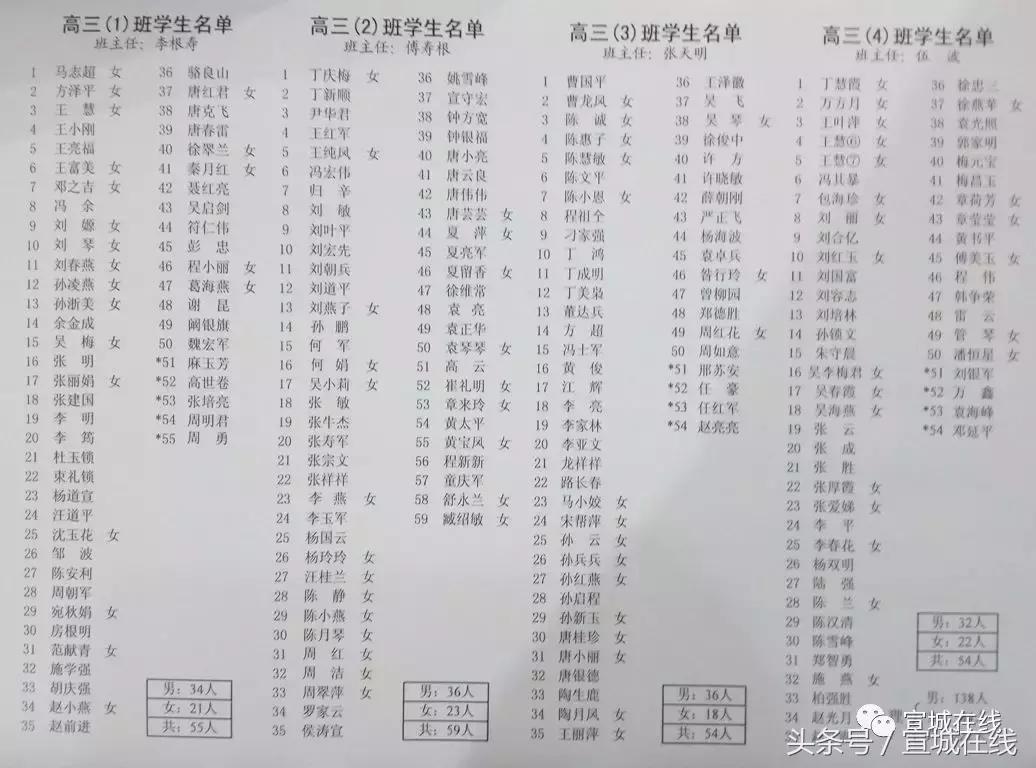 高三(1)班学生名单
班主任：李根寿
1 马志超 女
2 方泽平 女
3 王慧 女
4 王小刚
5 王亮福
6 王富美 女
7 邓之吉 女
8 冯余
9 刘嫄 女
10 刘琴 女
11 刘春燕 女
12 孙凌燕 女
13 孙浙美 女
14 余金成
15 吴梅 女
16 张明
17 张丽娟 女
18 张建国
19 李明
20 李筠
21 杜玉锁
22 束礼锁
23 杨道宣
24 汪道平
25 沈玉花 女
26 邹波
27 陈安利
28 周朝军
29 宛秋娟 女
30 房根明
31 范献青 女
32 施学强
33 胡庆强
34 赵小燕 女
35 赵前进
36 骆良山
37 唐红君 女
38 唐克飞
39 唐春雷
40 徐翠兰 女
41 秦月红 女
42 聂红亮
43 吴启剑
44 符仁伟
45 彭忠
46 程小丽 女
47 葛海燕 女
48 谢昆
49 阚银旗
50 魏宏军
*51 麻玉芳
*52 高世卷
*53 张培亮
*54 周明君
*55 周勇
男：34人
女：21人
共：55人
高三(2)班学生名单
班主任：傅寿根
1 丁庆梅 女
2 丁新顺
3 尹华君
4 王红军
5 王纯风 女
6 冯宏伟
7 归辛
8 刘敏
9 刘叶平
10 刘宏先
11 刘朝兵
12 刘道平
13 刘燕子 女
14 孙鹏
15 何军
16 何娟 女
17 吴小莉 女
18 张敏
19 张牛杰
20 张寿军
21 张宗文
22 张祥祥
23 李燕 女
24 李玉军
25 杨国云
26 杨玲玲 女
27 汪桂兰 女
28 陈静 女
29 陈小燕 女
30 陈月琴 女
31 周红 女
32 周洁 女
33 周翠萍 女
34 罗家云
35 侯涛宣
36 姚雪峰
37 宣守宏
38 钟方宽
39 钟银福
40 唐小亮
41 唐云良
42 唐伟伟
43 唐芸芸 女
44 夏萍 女
45 夏亮军
46 夏留香 女
47 徐维常
48 袁亮
49 袁正华
50 袁琴琴 女
51 高云
52 崔礼明 女
53 章来玲 女
54 黄太平
55 黄宝凤 女
56 程新新
57 童庆军
58 舒永兰 女
59 臧绍敏 女
男：36人
女：23人
共：59人
高三(3)班学生名单
班主任：张天明
1 曹国平
2 曹龙凤 女
3 陈诚 女
4 陈惠子 女
5 陈慧敏 女
6 陈文平
7 陈小恩 女
8 程祖全
9 刁家强
10 丁鸿
11 丁成明
12 丁美枭
13 董达兵
14 方超
15 冯士军
16 黄俊
17 江辉
18 李亮
19 李家林
20 李亚文
21 龙祥祥
22 路长春
23 马小姣 女
24 宋帮萍 女
25 孙云 女
26 孙兵兵 女
27 孙红燕 女
28 孙启程
29 孙新玉 女
30 唐桂珍 女
31 唐小丽 女
32 唐银德
33 陶生鹿
34 陶月凤 女
35 王丽萍 女
36 王泽徽
37 吴飞
38 吴琴 女
39 徐俊中
40 许方
41 许晓敏
42 薛朝刚
43 严正飞
44 杨海波
45 袁卓兵
46 昝行玲 女
47 曾柳园
48 郑德胜
49 周红花 女
50 周如意
*51 邢苏安
*52 任豪
*53 任红军
*54 赵亮亮
男：36人
女：18人
共：54人
高三(4)班学生名单
班主任：伍波
1 丁慧霞 女
2 万方月 女
3 王叶萍 女
4 王慧⑥ 女
5 王慧⑦ 女
6 冯其暴
7 包海珍 女
8 刘丽 女
9 刘合亿
10 刘红玉 女
11 刘国富
12 刘容志
13 刘培林
14 孙锁文
15 朱守晨
16 吴李梅君 女
17 吴春霞 女
18 吴海燕 女
19 张云
20 张成
21 张胜
22 张厚霞 女
23 张爱娣 女
24 李平
25 李春花 女
26 杨双明
27 陆强
28 陈兰 女
29 陈汉清
30 陈雪峰
31 郑智勇
32 施燕 女
33 柏强胜
34 赵光月
36 徐忠三
37 徐燕苹 女
38 袁光照
39 郭家明
40 梅元宝
41 梅昌玉
42 章荷芳 女
43 章莹莹 女
44 黄书平
45 傅美玉 女
46 程伟
47 韩争荣
48 雷云
49 管琴 女
50 潘恒星 女
*51 刘银军
*52 方鑫
*53 袁海峰
*54 邓延平
男：32人
女：22人
共：54人
男：138人
宣城在线
头条号/宣城在线